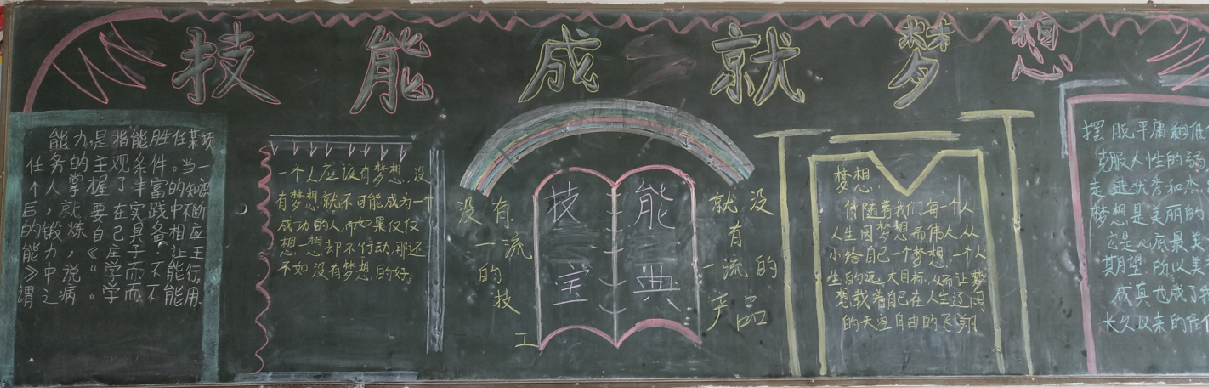 技能成就梦想
能力,是指能胜任某项
任务的主观条件。当一
个人掌握了丰富的知识
后,就要在实践中不断
的锻炼自己具备相应
能力中,说《庄学而不能行
谓之病。学而不能用
一个人应该有梦想,没
有梦想就不可能成为一个
成功的人,而如果仅仅
想一想却不行动,那还
不如没有梦想的好。
没有
一流
的技
工
技能
宝典
就没
有
一流的
产品
梦想
伴随着我们每一个人
人生因梦想而伟大,从
小给自己一个梦想,一个人
生的远大目标,从而让梦
想载着自己在人生辽阔
的天空自由的飞翔
摆脱平庸和低
克服人性的弱
走进优秀和杰
梦想是美丽的
它是心底最美
期望,所以美
成真也成了我
长久以来的信